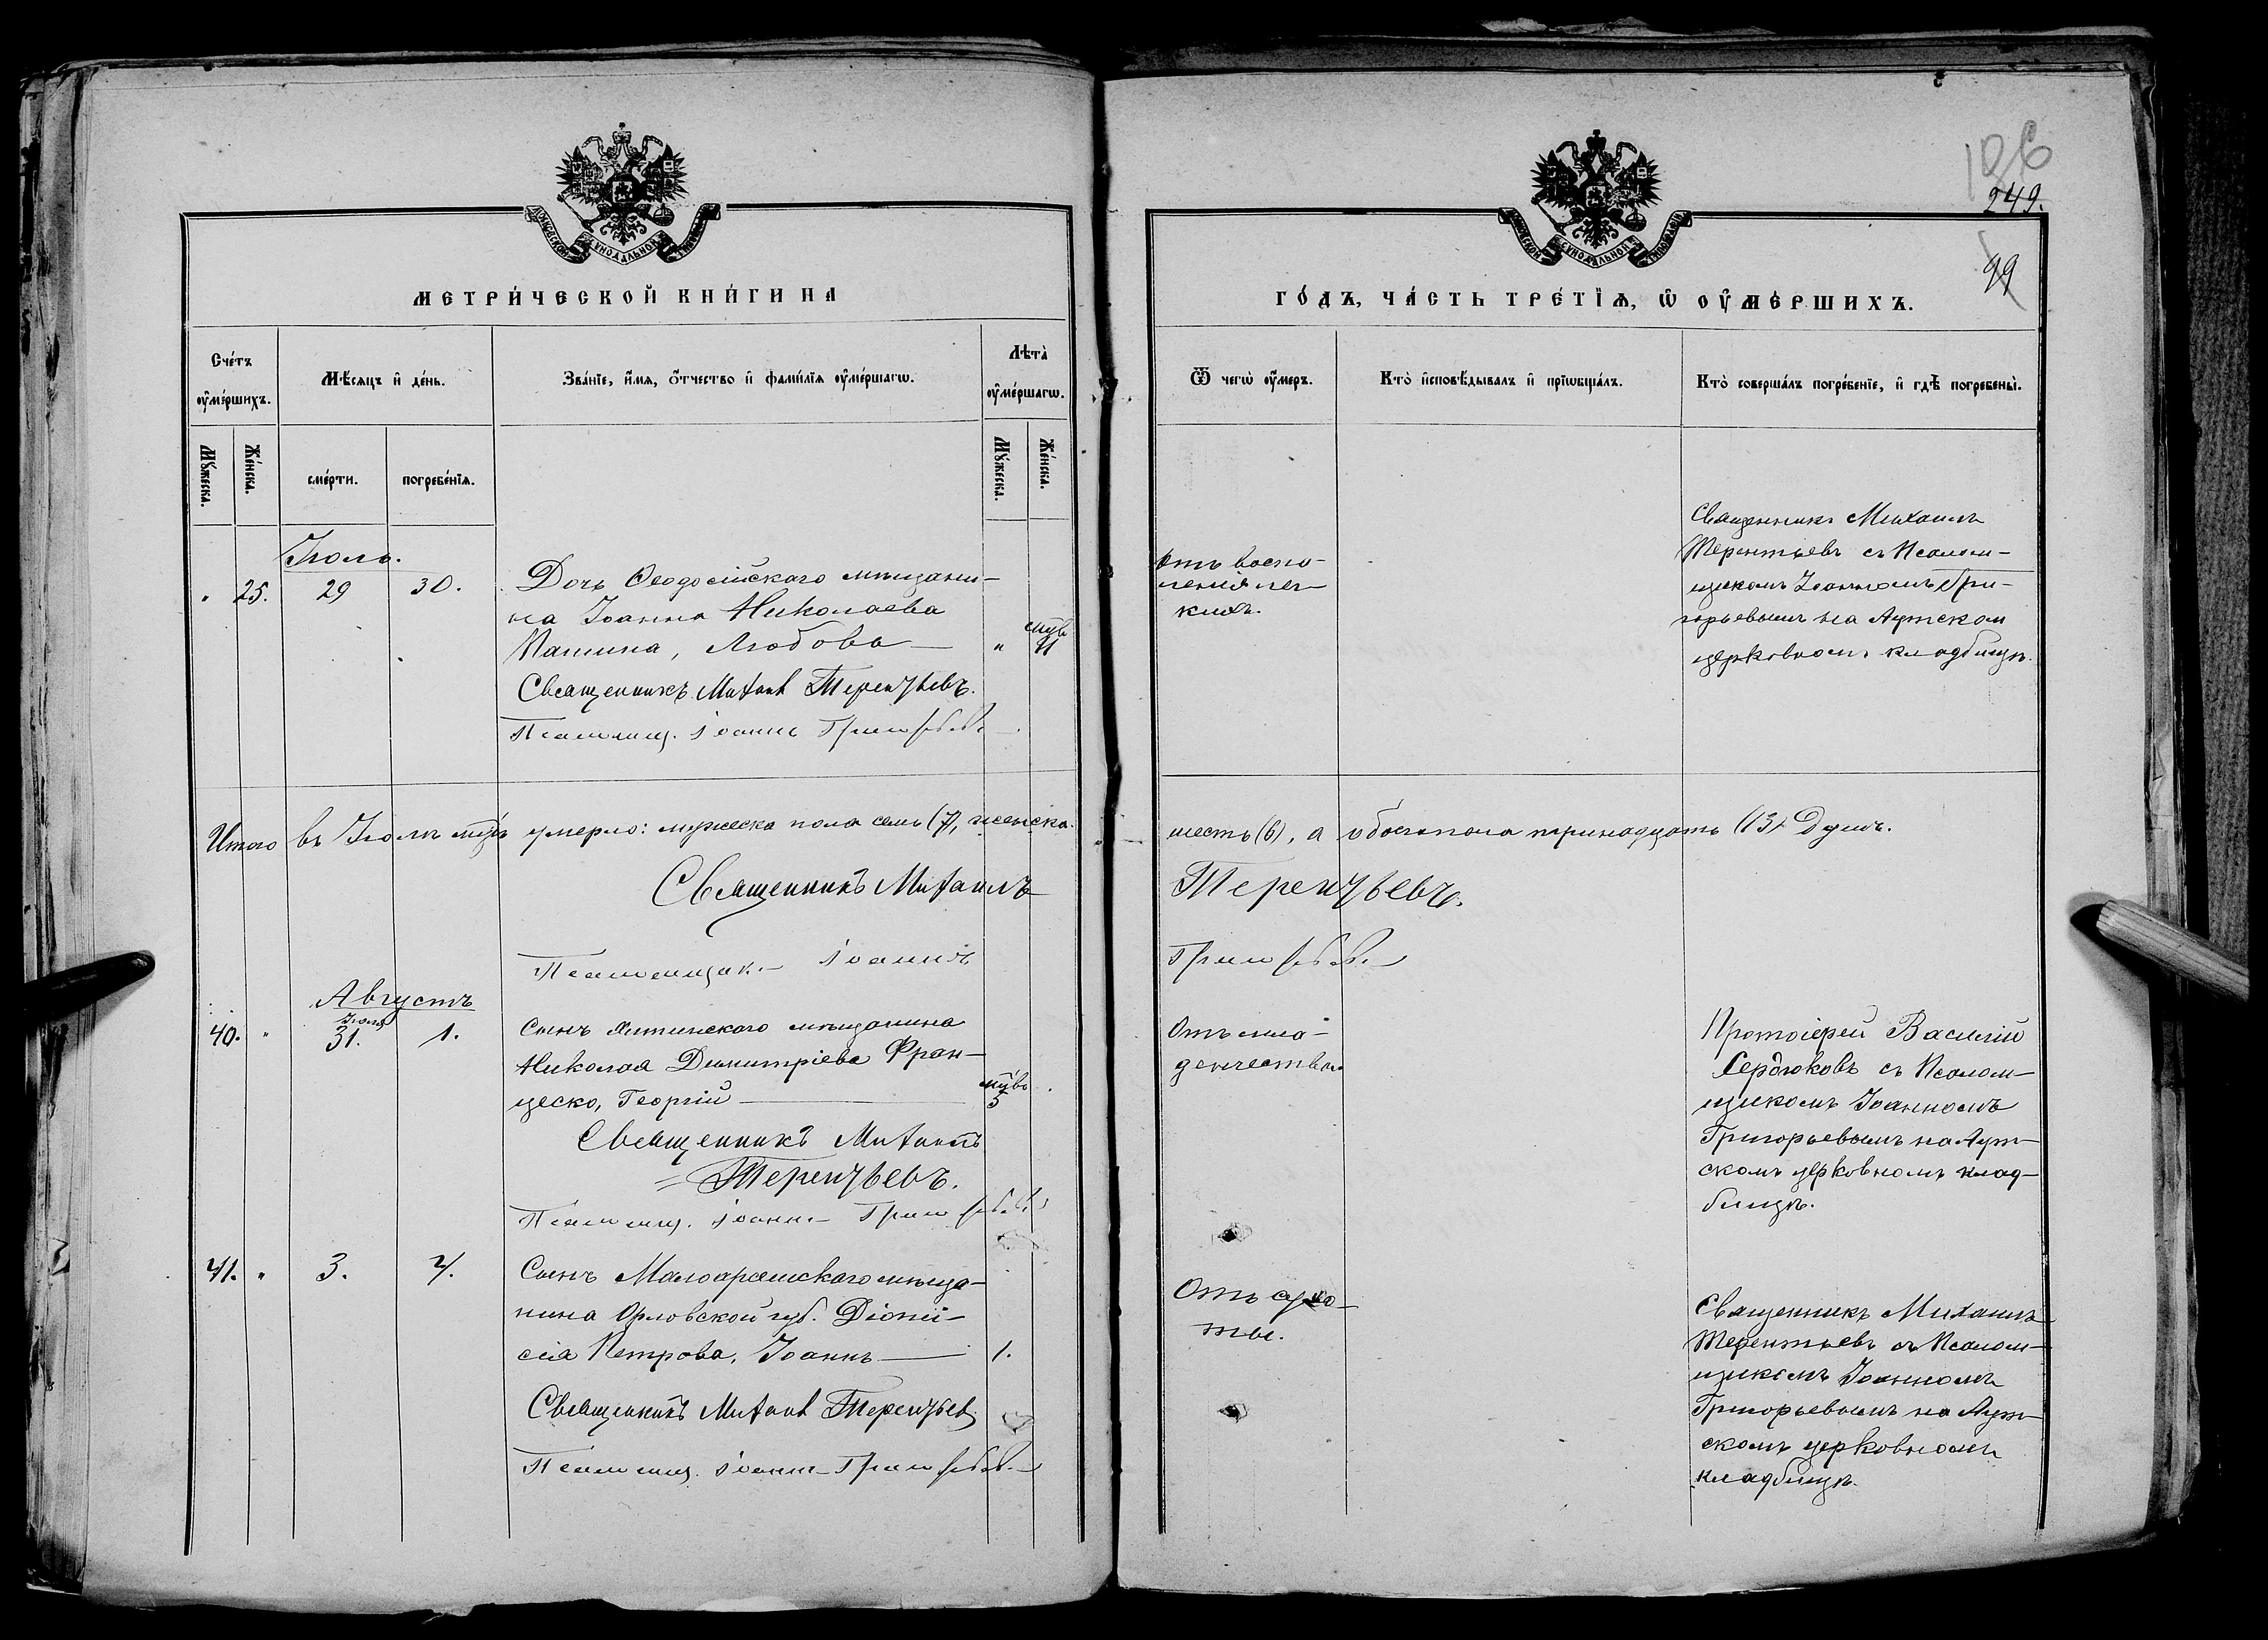 МЕТРИ́ЧЕСКОЙ КНИ́ГИ НА
Сче́тъ ᲂу҆ме́ршихъ.
Мѣ́сяцъ и҆ де́нь.
Зва́нїе, и҆́мя, ѻ҆́тчество и҆ фами́лїя ᲂу҆ме́ршагѡ.
Лѣта̀ ᲂу҆ме́ршагѡ.
Мꙋ́жеска.
Же́нска.
сме́рти.
погребе́нїѧ.
Мꙋ́жеска.
Же́нска.
Іюль.
" 25. 29 30.
Дочь Ѳеодосійскаго мѣщани-
на Іоанна Николаева
Папина, Любовь — "
мѣс. 11
Священникъ Михаилъ Терентьевъ.
Псаломщ. Іоаннъ Григорьевъ
Итого въ Іюлѣ мцѣ умерло: мужеска пола семь (7), женска
Священникъ Михаилъ
Псаломщикъ Іоаннъ
Августъ
Іюля
40. " 31. 1.
Сынъ мѣщанина
Николая Димитріева Фран-
цеско, Георгій —
мѣс. 5
Священникъ Михаилъ
Терентьевъ.
Псаломщ. Іоаннъ Григорьевъ
41. " 3. 4.
Сынъ Малоархангельскаго мѣща-
нина Орловской губ. Діони-
сія Петрова, Іоаннъ — 1.
Священникъ Михаилъ Терентьев
Псаломщ. Іоаннъ Григорьевъ
126
249.
99
ГО́ДЪ, ЧА́СТЬ ТРЕ́ТЇѦ, Ѡ҆ ОУ҆МЕ́РШИХЪ.
Ѿ чегѡ̀ ᲂу҆́меръ.
Кто̀ и҆сповѣ́дывалъ и҆ прїѡбща́лъ.
Кто̀ соверша́лъ погребе́нїе, и҆ гдѣ̀ погребены̀.
Отъ воспа-
ленія лег-
кихъ.
Священникъ Михаилъ
Терентьевъ съ Псалом-
щикомъ Іоанномъ Гри-
горьевымъ на Аутском
церковномъ кладбищѣ.
шесть (6), а обоего пола тринадцать (13) душъ.
Терентьевъ.
Григорьевъ
Отъ мла-
денчества.
Протоіерей Василій
Сердюковъ съ Псалом-
щикомъ Іоанномъ
Григорьевымъ на Аут-
скомъ церковномъ клад-
бищѣ.
Отъ сухо-
ты.
Священникъ Михаилъ
Терентьевъ съ Псалом-
щикомъ Іоанномъ
Григорьевымъ на Аут-
скомъ церковномъ
кладбищѣ.